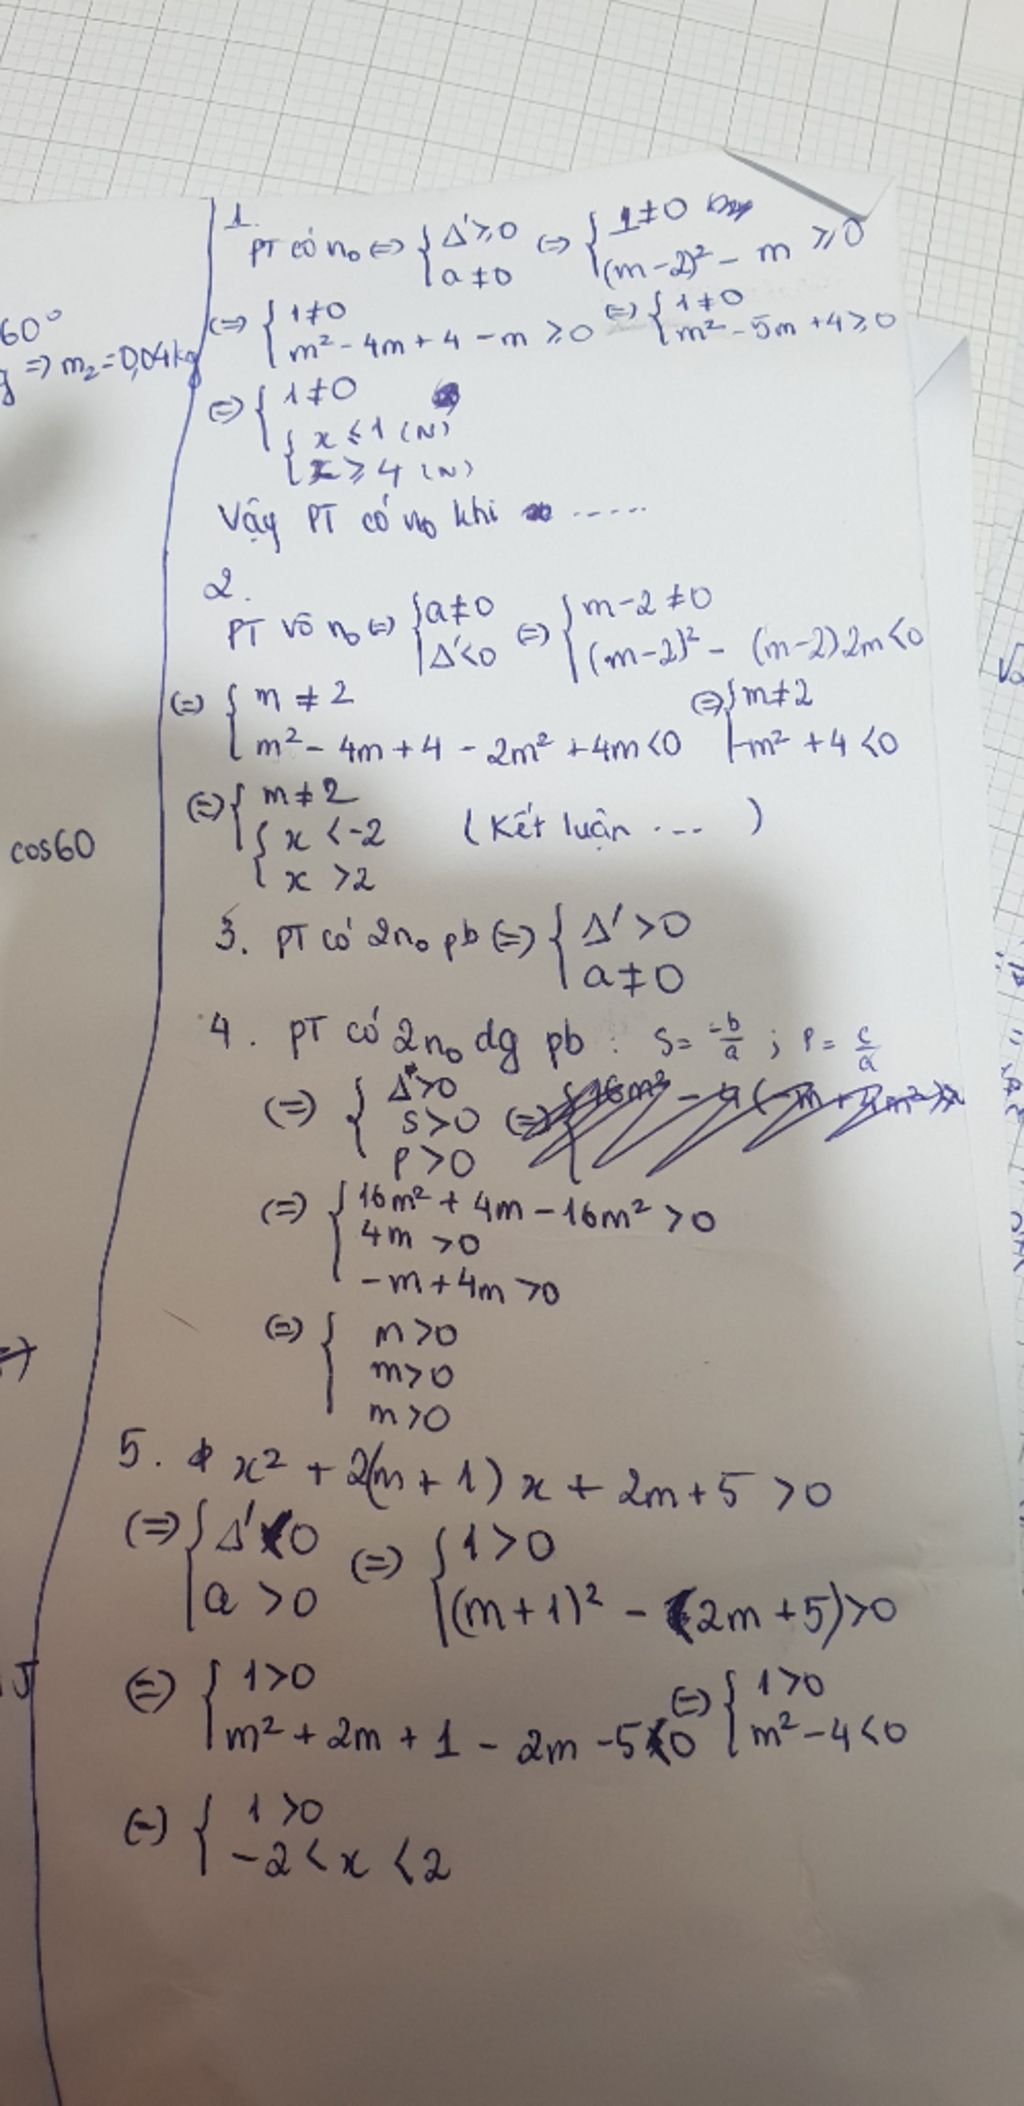 60°
=> m₂=0,04kg
cos60
1.
PT có n₀ <=> { Δ'≥0 <=> { 1≠0
a≠0 (m-2)² - m ≥0
<=> { 1≠0 <=> { 1≠0
m² - 4m + 4 - m ≥0 m² - 5m + 4≥0
<=> { 1≠0
{ x ≤ 1 (N)
x ≥ 4 (N)
Vậy PT có n₀ khi .....
2.
PT vô n₀ <=> { a≠0 <=> { m-2≠0
Δ'<0 (m-2)² - (m-2)2m<0
<=> { m ≠ 2 <=> { m≠2
m² - 4m + 4 - 2m² + 4m<0 -m² + 4 <0
<=> { m≠2
{ x <-2 (Kết luận ...)
x >2
3. PT có 2n₀ pb <=> { Δ' >0
a≠0
4. PT có 2n₀ dg pb : S= -b/a ; P= c/a
<=> { Δ'>0
S>0 <=> {
P>0
<=> { 16m² + 4m - 16m² >0
4m >0
-m + 4m >0
<=> { m >0
m>0
m>0
5. x² + 2(m+1)x + 2m+5 >0
<=> { Δ'<0 <=> { 1>0
a >0 (m+1)² - (2m+5)>0
<=> { 1>0 <=> { 1>0
m² + 2m + 1 - 2m -5<0 m² - 4 <0
<=> { 1 >0
-2 < x <2